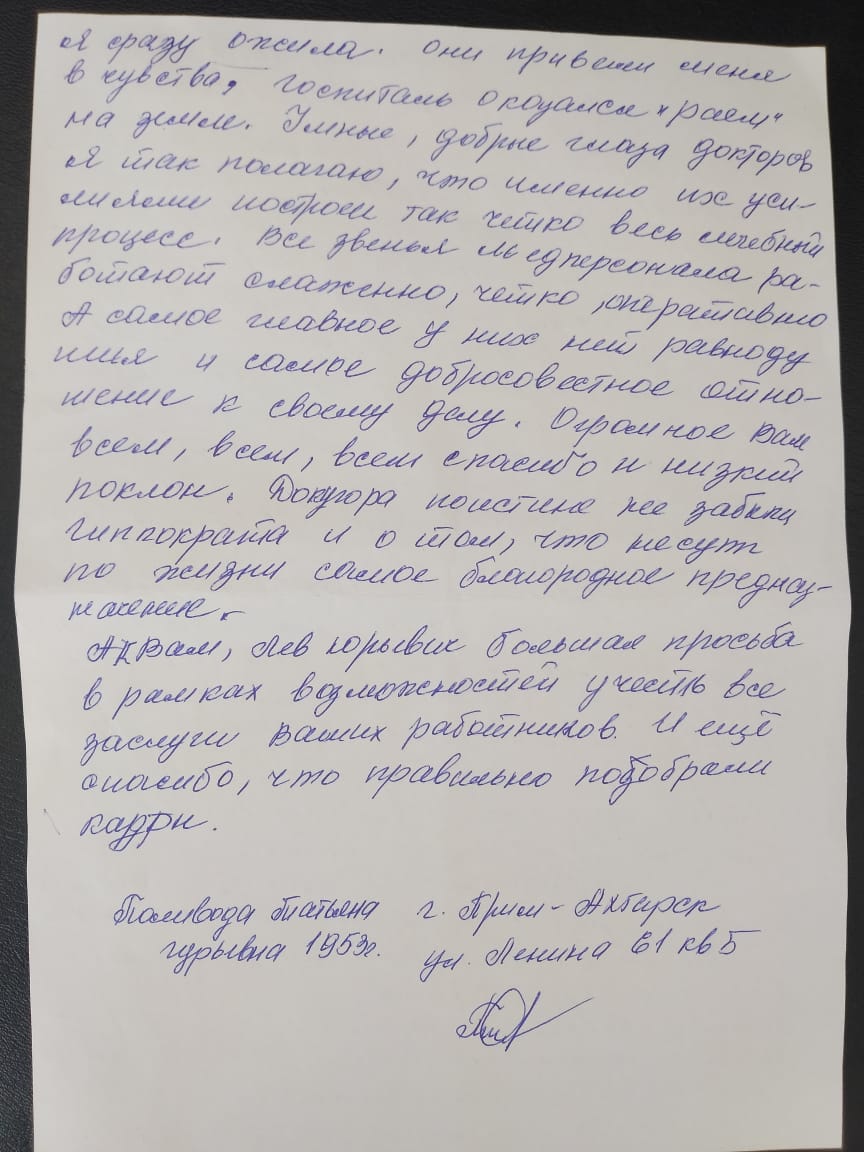 я сразу ожила. Они привели меня
в чувства, госпиталь оказался "раем"
на земле. Умные, добрые глаза докторов
Я так полагаю, что именно их уси-
лиями построен так четко весь лечебный
процесс. Все звенья медперсонала ра-
ботают слаженно, четко, оперативно
А самое главное у них нет равноду
шия и самое добросовестное отно-
шение к своему делу. Огромное Вам
всем, всем, всем спасибо и низкий
поклон. Доктора поистине не забыли
гиппократа и о том, что несут
по жизни самое благородное предназ-
начение.
А к Вам, Лев Юрьевич большая просьба
в рамках возможностей учесть все
заслуги Ваших работников. И ещё
спасибо, что правильно подобрали
кадры.
Паливода Татьяна
гурьевна 1953г.
г. Прим-Ахтарск
ул. Ленина 61 кв 5